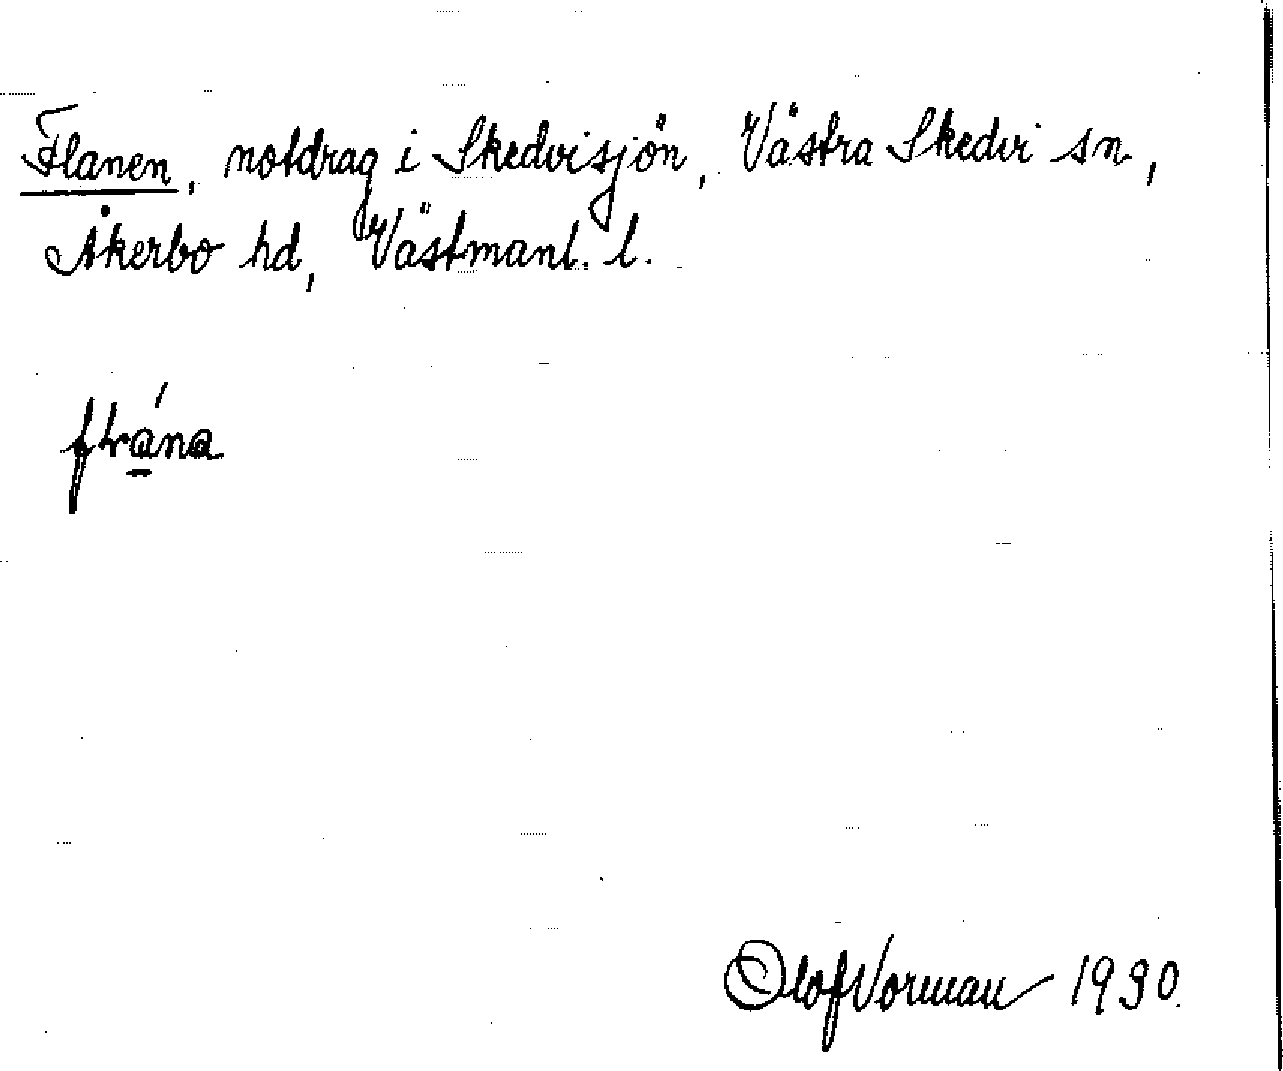 Flanen, notdrag i Skedvisjön, Västra Skedvi sn,
Åkerbo hd, Västmanl. l.
Olof Vorman 1930.